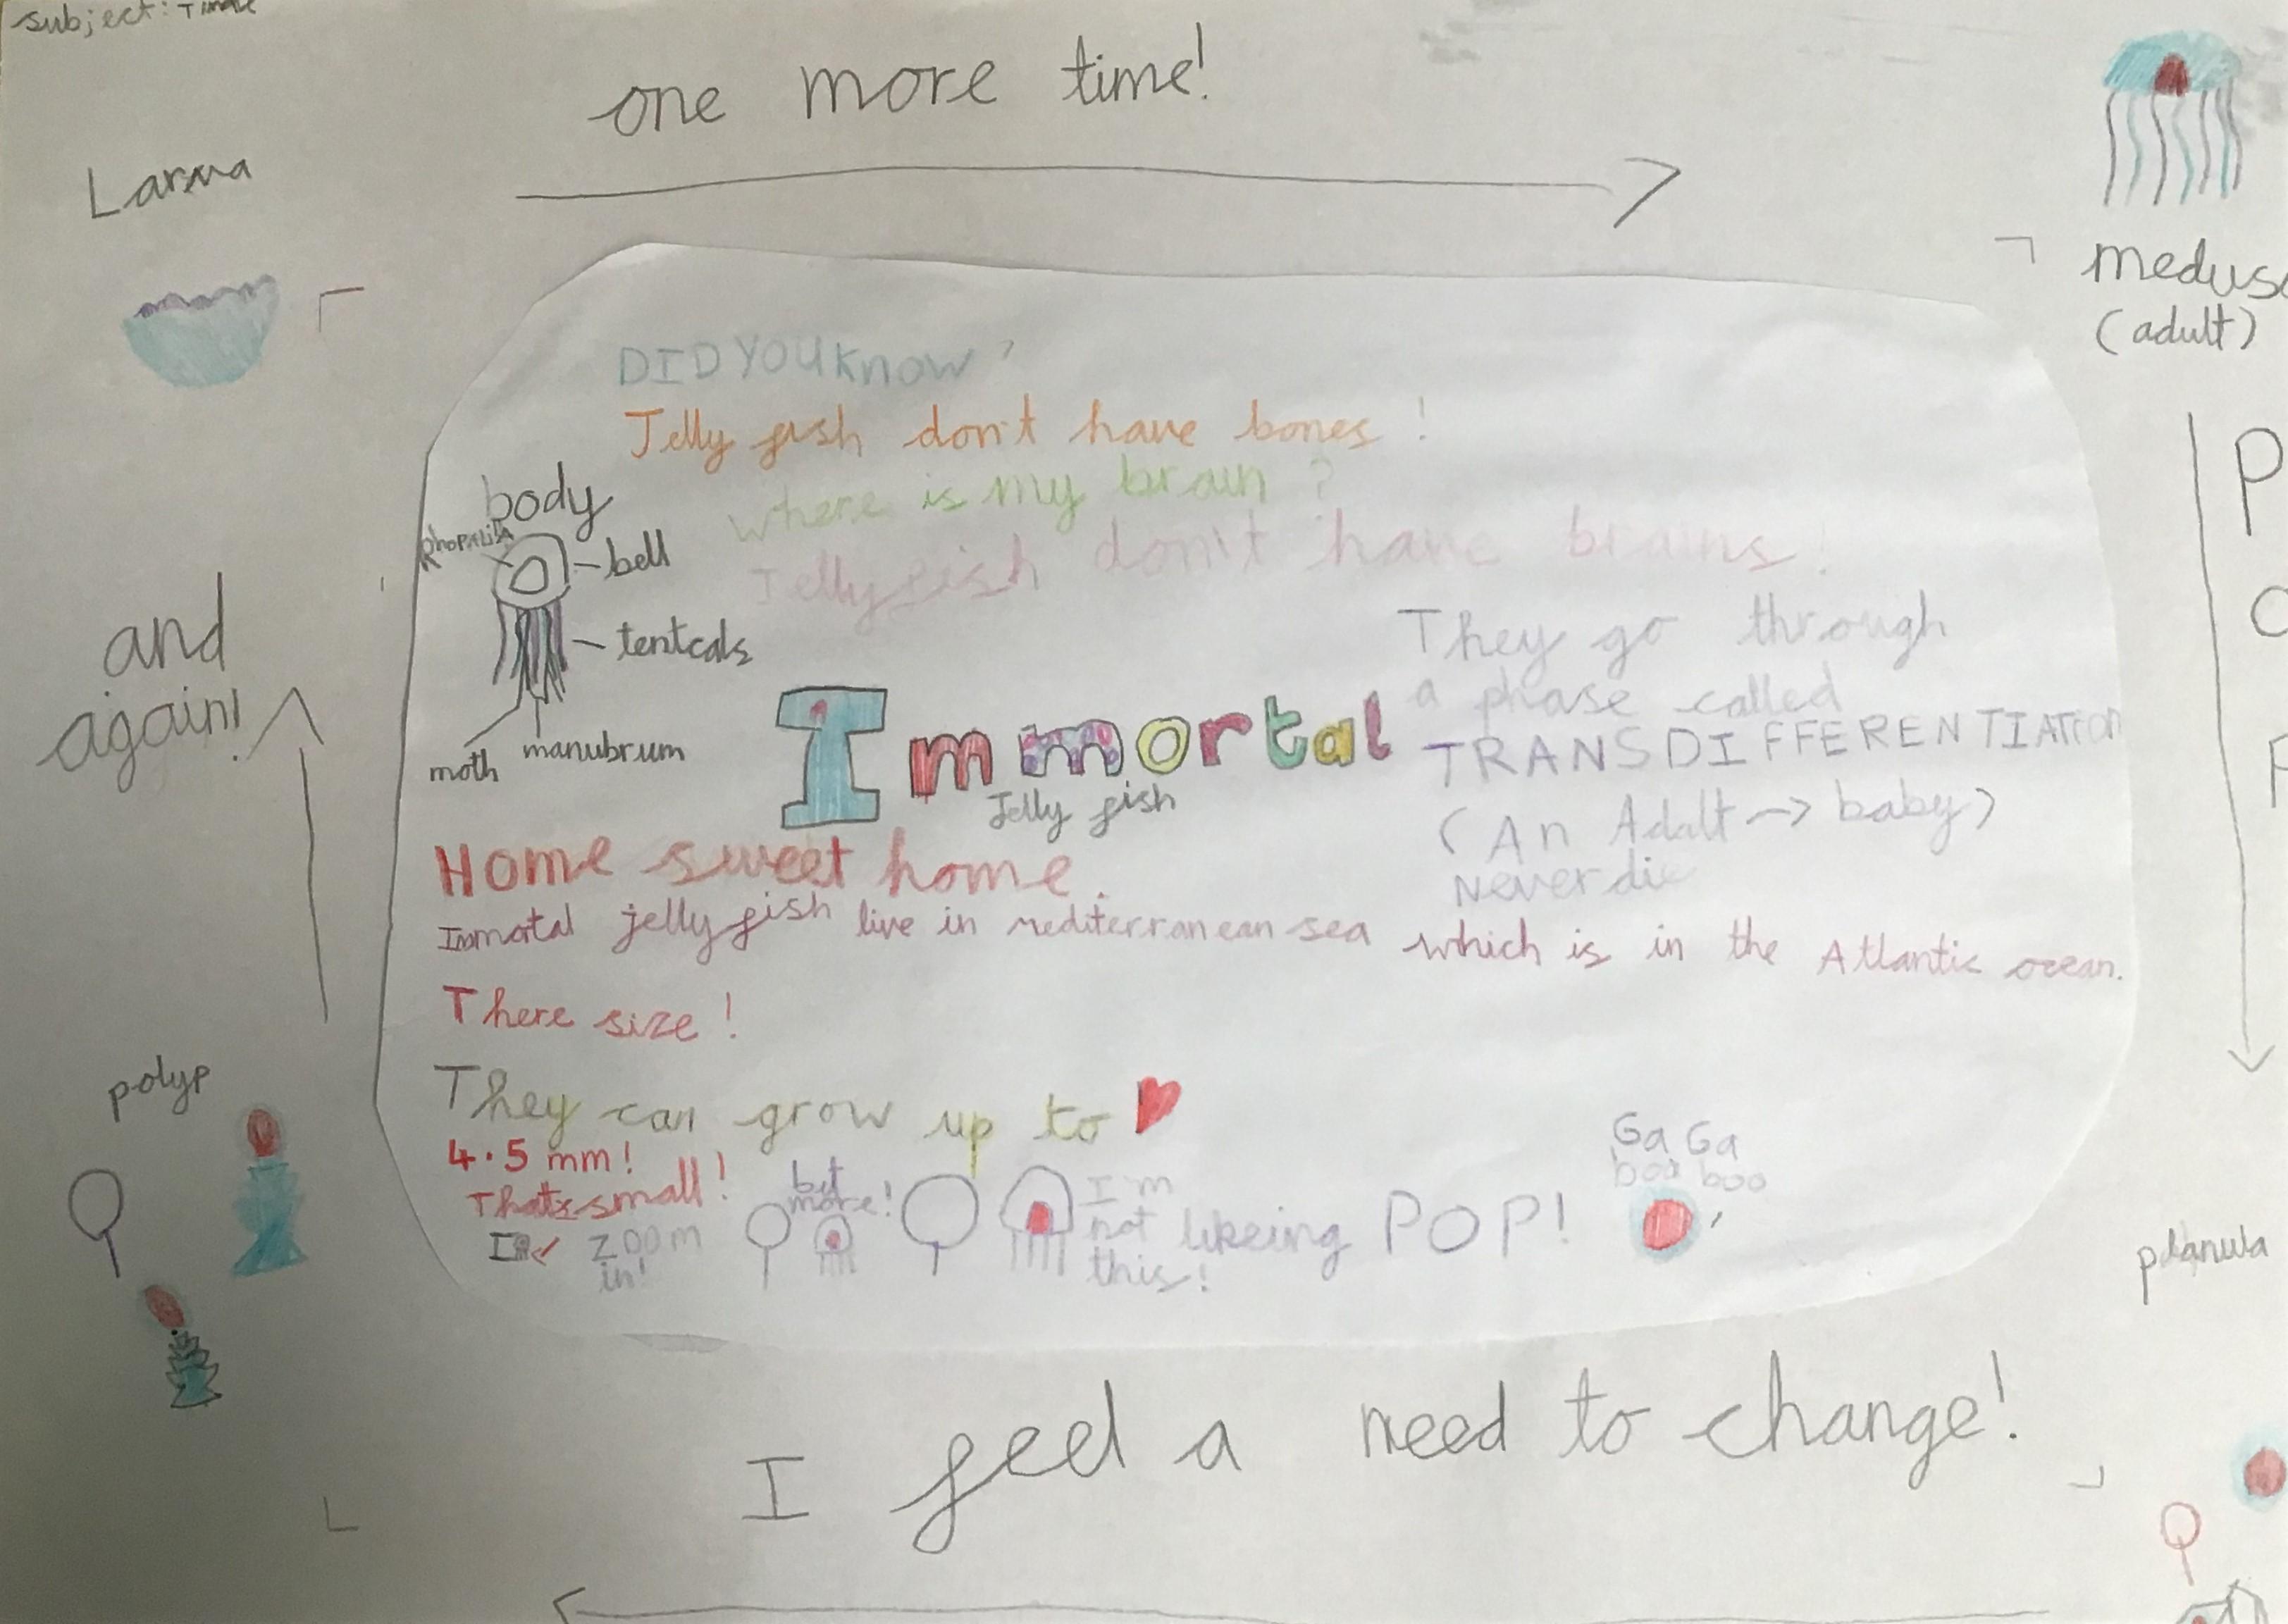 subject:
one more time!
Larva
medus
(adult)
DID YOU know?
Jelly fish don't have bones!
where is my brain?
Jelly fish don't have brains!
body
Rhopalia
bell
tentcals
moth
manubrum
They go through
a phase called
TRANSDIFFERENTIATION
(An Adalt → baby)
Never die
Immortal
Jelly fish
and
again!
P
O
P
Home sweet home.
Immortal jelly fish live in mediterranean sea which is in the Atlantic ocean.
There size!
They can grow up to
4.5 mm!
That's small!
zoom
in!
but
more!
I'm
not likeing
this!
POP!
Ga Ga
boo boo
polyp
planula
I feel a need to change!